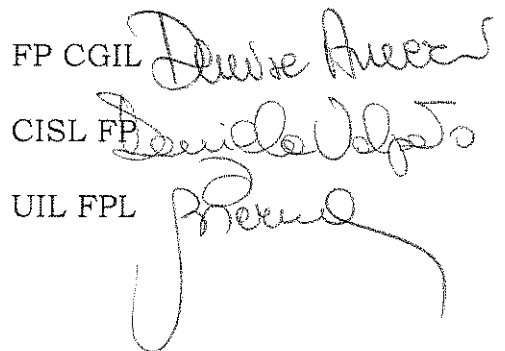 FP CGIL Denise
CISL FP Daniela Volpato
UIL FPL